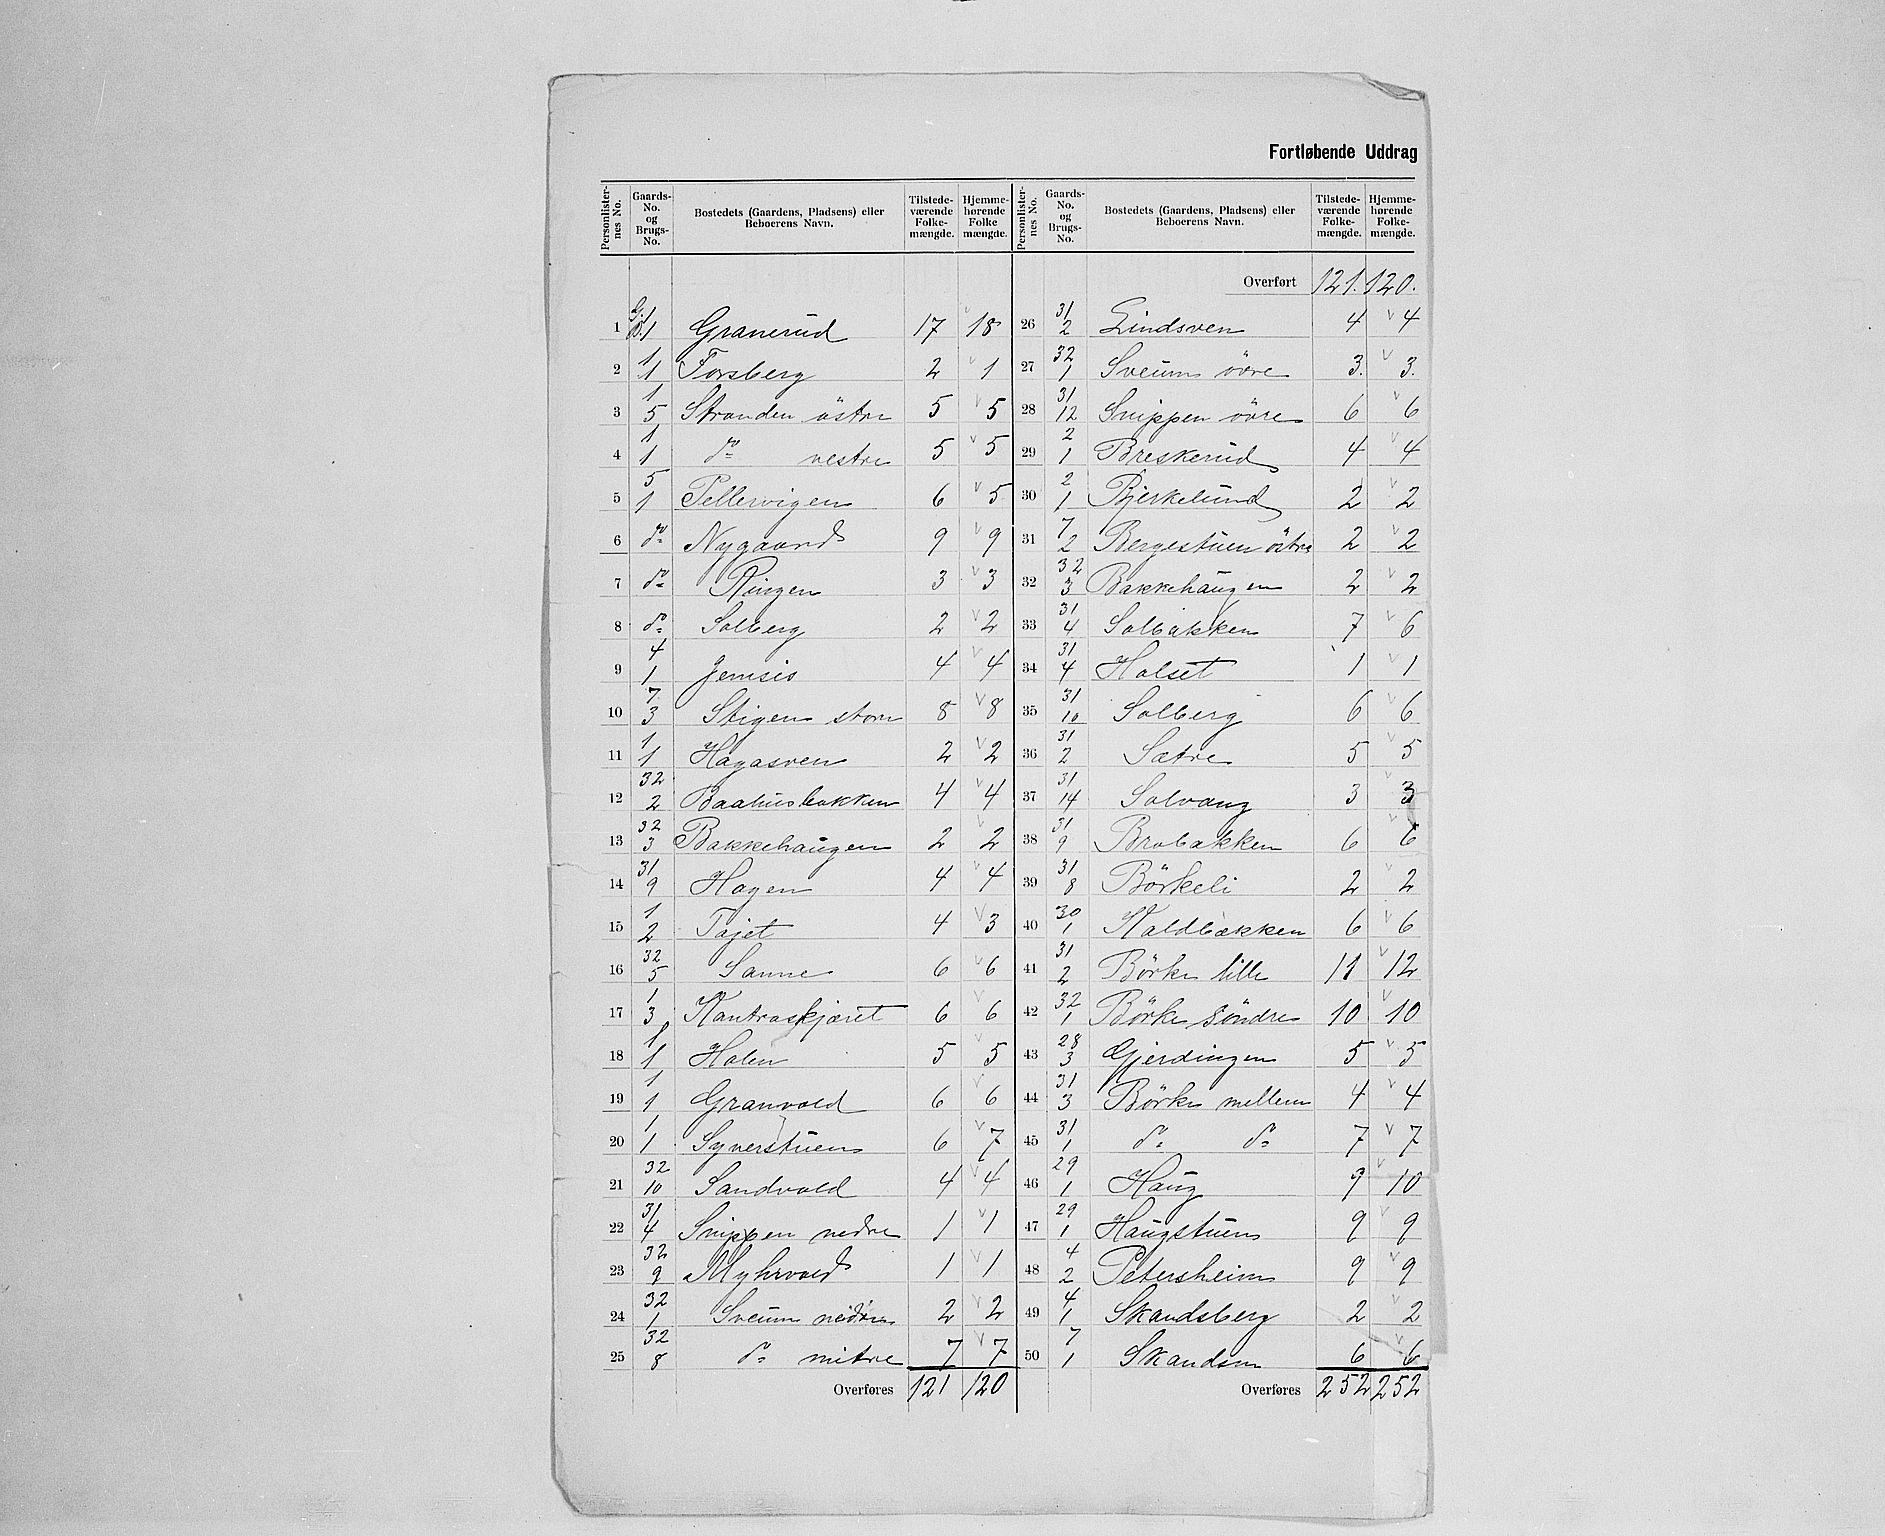 Fortløbende Uddrag
Personlisternes No. | Gaards-No. og Brugs-No. | Bostedets (Gaardens, Pladsens) eller Beboerens Navn. | Tilstedeværende Folkemængde. | Hjemmehørende Folkemængde. | Personlisternes No. | Gaards-No. og Brugs-No. | Bostedets (Gaardens, Pladsens) eller Beboerens Navn. | Tilstedeværende Folkemængde. | Hjemmehørende Folkemængde.
Overført 121. 120.
1 G. 1 B. 1 Granerud 17 18
2 1/1 Forsberg 2 1
3 1/5 Stranden östre 5 5
4 1/1 do vestre 5 5
5 5/1 Pellervigen 6 5
6 do Nygaard 9 9
7 do Ringen 3 3
8 do Solberg 2 2
9 4/1 Jemsis 4 4
10 7/3 Stigen store 8 8
11 1/1 Hagasven 2 2
12 32/2 Baahusbakken 4 4
13 32/3 Bakkehaugen 2 2
14 31/9 Hagen 4 4
15 1/2 Tajet 4 3
16 32/5 Sanne 6 6
17 1/3 Kantraskjæret 6 6
18 1/1 Holen 5 5
19 1/1 Granvold 6 6
20 1/1 Syverstuen 6 7
21 32/10 Sandvold 4 4
22 31/4 Snippen nedre 1 1
23 32/9 Myhrvold 1 1
24 32/1 Sveum nedre 2 2
25 32/8 do mitre 7 7
Overføres 121 120
26 31/2 Lindsven 4 4
27 32/1 Sveum övre 3. 3.
28 31/12 Snippen övre 6 6
29 2/1 Breskerud 4 4
30 2/1 Bjerkelund 2 2
31 7/2 Bergestuen östre 2 2
32 32/3 Bakkehaugen 2 2
33 31/4 Solbakken 7 6
34 31/4 Holset 1 1
35 31/10 Solberg 6 6
36 31/2 Sætre 5 5
37 31/14 Solvang 3 3
38 31/9 Brobakken 6 6
39 31/8 Börkeli 2 2
40 30/1 Kaldbækken 6 6
41 31/2 Börke lille 11 12
42 32/1 Börke söndre 10 10
43 28/3 Gjerdingen 5 5
44 31/3 Börke mellem 4 4
45 31/1 do do 7 7
46 29/1 Haug 9 10
47 29/1 Haugstuen 9 9
48 4/2 Petersheim 9 9
49 4/1 Skandsberg 2 2
50 7/1 Skandsen 6 6
Overføres 252 252